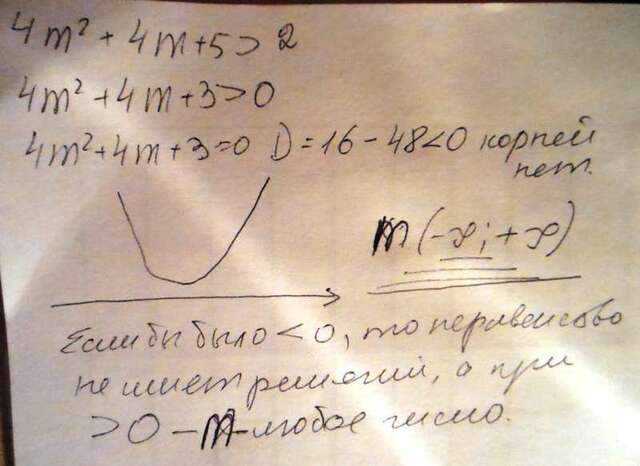 4m² + 4m+5 > 2
4m² +4m+3>0
4m²+4m+3=0 D=16-48<0 корней
нет.
m (-∞; +∞)
Если бы было <0, то неравенство
не имеет решений, а при
>0 - m - любое число.